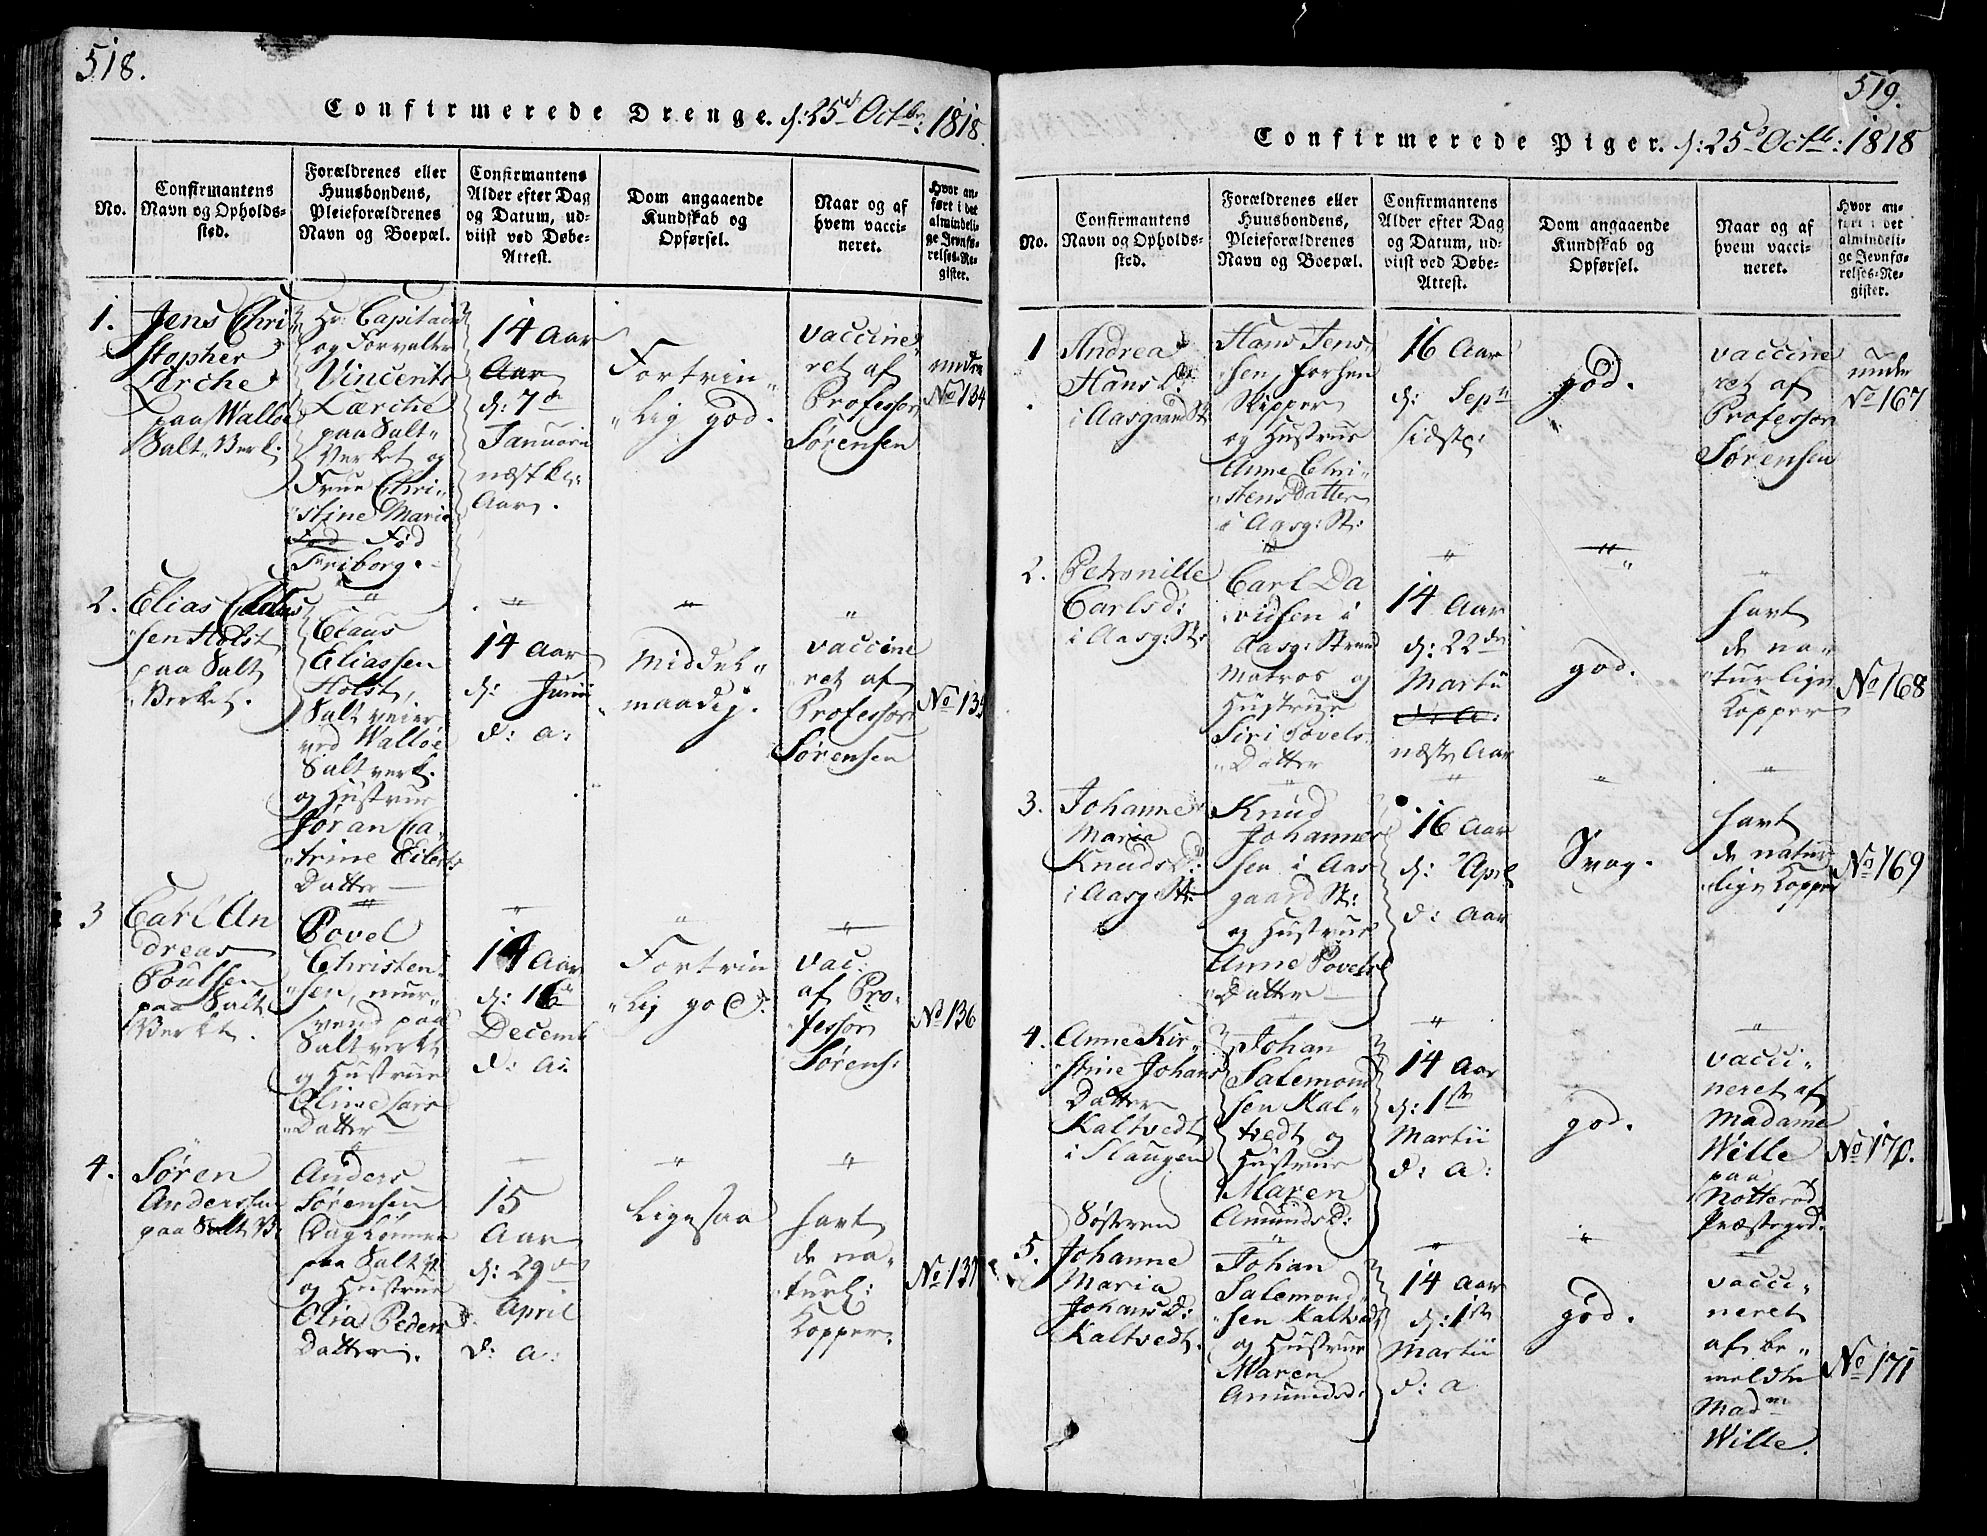 518.
Confirmerede Drenge. d: 25de Octbr: 1818.
No.
Confirmantens
Navn og Opholds-
sted.
Forældrenes eller
Huusbondens,
Pleieforældrenes
Navn og Boepæl.
Confirmantens
Alder efter Dag
og Datum, ud-
viist ved Døbe-
Attest.
Dom angaaende
Kundskab og
Opførsel.
Naar og af
hvem vacci-
neret.
Hvor an-
ført i det
almindeli-
ge Jevnfø-
relses-Re-
gister.
1.
Jens Chri
stopher
Lærche
paa Walløe
Salt Verk:
Hr: Capitain
og Forvalter
Vincents
Lærche
paa Salt-
Verket og
Frue Chri-
stine Marie
Fød
Friborg.
14 Aar
Aar
d: 7de
Januari
næstk:
Aar.
Fortrin
lig god.
vaccine
ret af
Professor
Sørensen
under
No 134
2.
Elias Claus
sen Holst
paa Salt
Verket.
Claus
Eliassen
Holst,
Saltveier
ved Walløe
Saltverk.
og Hustrue
Jøran Ca-
trine Eilerts
Datter
14 Aar
d: Junii
d: a:
Middel
maadig.
vaccine
ret af
Professor
Sørensen
No 135
3
Carl An
dreas
Poulsen
paa Salt
Verket.
Povel
Christen-
sen, mur-
svend paa
Saltverket
og Hustrue
Oline Lars
Datter
14 Aar
d: 16
Decemb
d: a:
Fortrin
lig god.
vac:
af Pro-
fessor
Sørens:
No 136
4.
Søren
Anderssen
paa Salt V.
Anders
Sørensen
Daglønner
paa Salt V.
og Hustrue
Olia Peders
Datter.
15
Aar
d: 29de
April
d: a:
Ligesaa
havt
de na-
turl:
Kopper.
No 137
519.
Confirmerede Piger. d: 25de Octbr: 1818
No.
Confirmantens
Navn og Opholds-
sted.
Forældrenes eller
Huusbondens,
Pleieforældrenes
Navn og Boepæl.
Confirmantens
Alder efter Dag
og Datum, ud-
viist ved Døbe-
Attest.
Dom angaaende
Kundskab og
Opførsel.
Naar og af
hvem vacci-
neret.
Hvor an-
ført i det
almindeli-
ge Jevnfø-
relses-Re-
gister.
1
Andrea
Hans D:
i Aasgaard St:
Hans Jens-
sen, forhen
Skipper
og Hustrue
Anne Chri-
stens Datter
i Aasg: St:
16 Aar
d: Sept
sidste:
god.
vaccine
ret af
Professor
Sørensen
under
No 167
2.
Petronille
Carlsd:
i Aasg: St:
Carl Da
vidsen i
Aasg: Strand
Matros og
Hustrue
Siri Povels-
Datter
14 Aar
d: 22de
Martii
d: a:
næste Aar
god.
havt
de na-
turlige
Kopper
No 168
3.
Johanne
Maria
Knuds D:
i Aasg St:
Knud
Johannes
sen i Aas
gaard St:
og Hustrue
Anne Povels
Datter
16 Aar
d: April
d: Aar
Svag.
havt
de natur
lige Kopper
No 169
4.
Anne Kir-
stine Johans
Datter
Kaltvedt
i Slaugen
Johan
Salemond
sen Kal-
tvedt og
Hustrue
Maren
Amunds D:
14 Aar
d: 1ste
Martii
d: a:
god.
vacci-
neret af
Madame
Wille
paa
Nøtterøe
Præstegrd.
No 170.
5.
Søsteren
Johanne
Maria
Johans D:
Kaltvedt.
Johan
Salemond-
sen Kaltvedt
og Hustrue
Maren
Amundsd:
14 Aar
d: 1ste
Martii
d: a
god.
vacci-
neret
af be-
meldte
Madm
Wille.
No 171